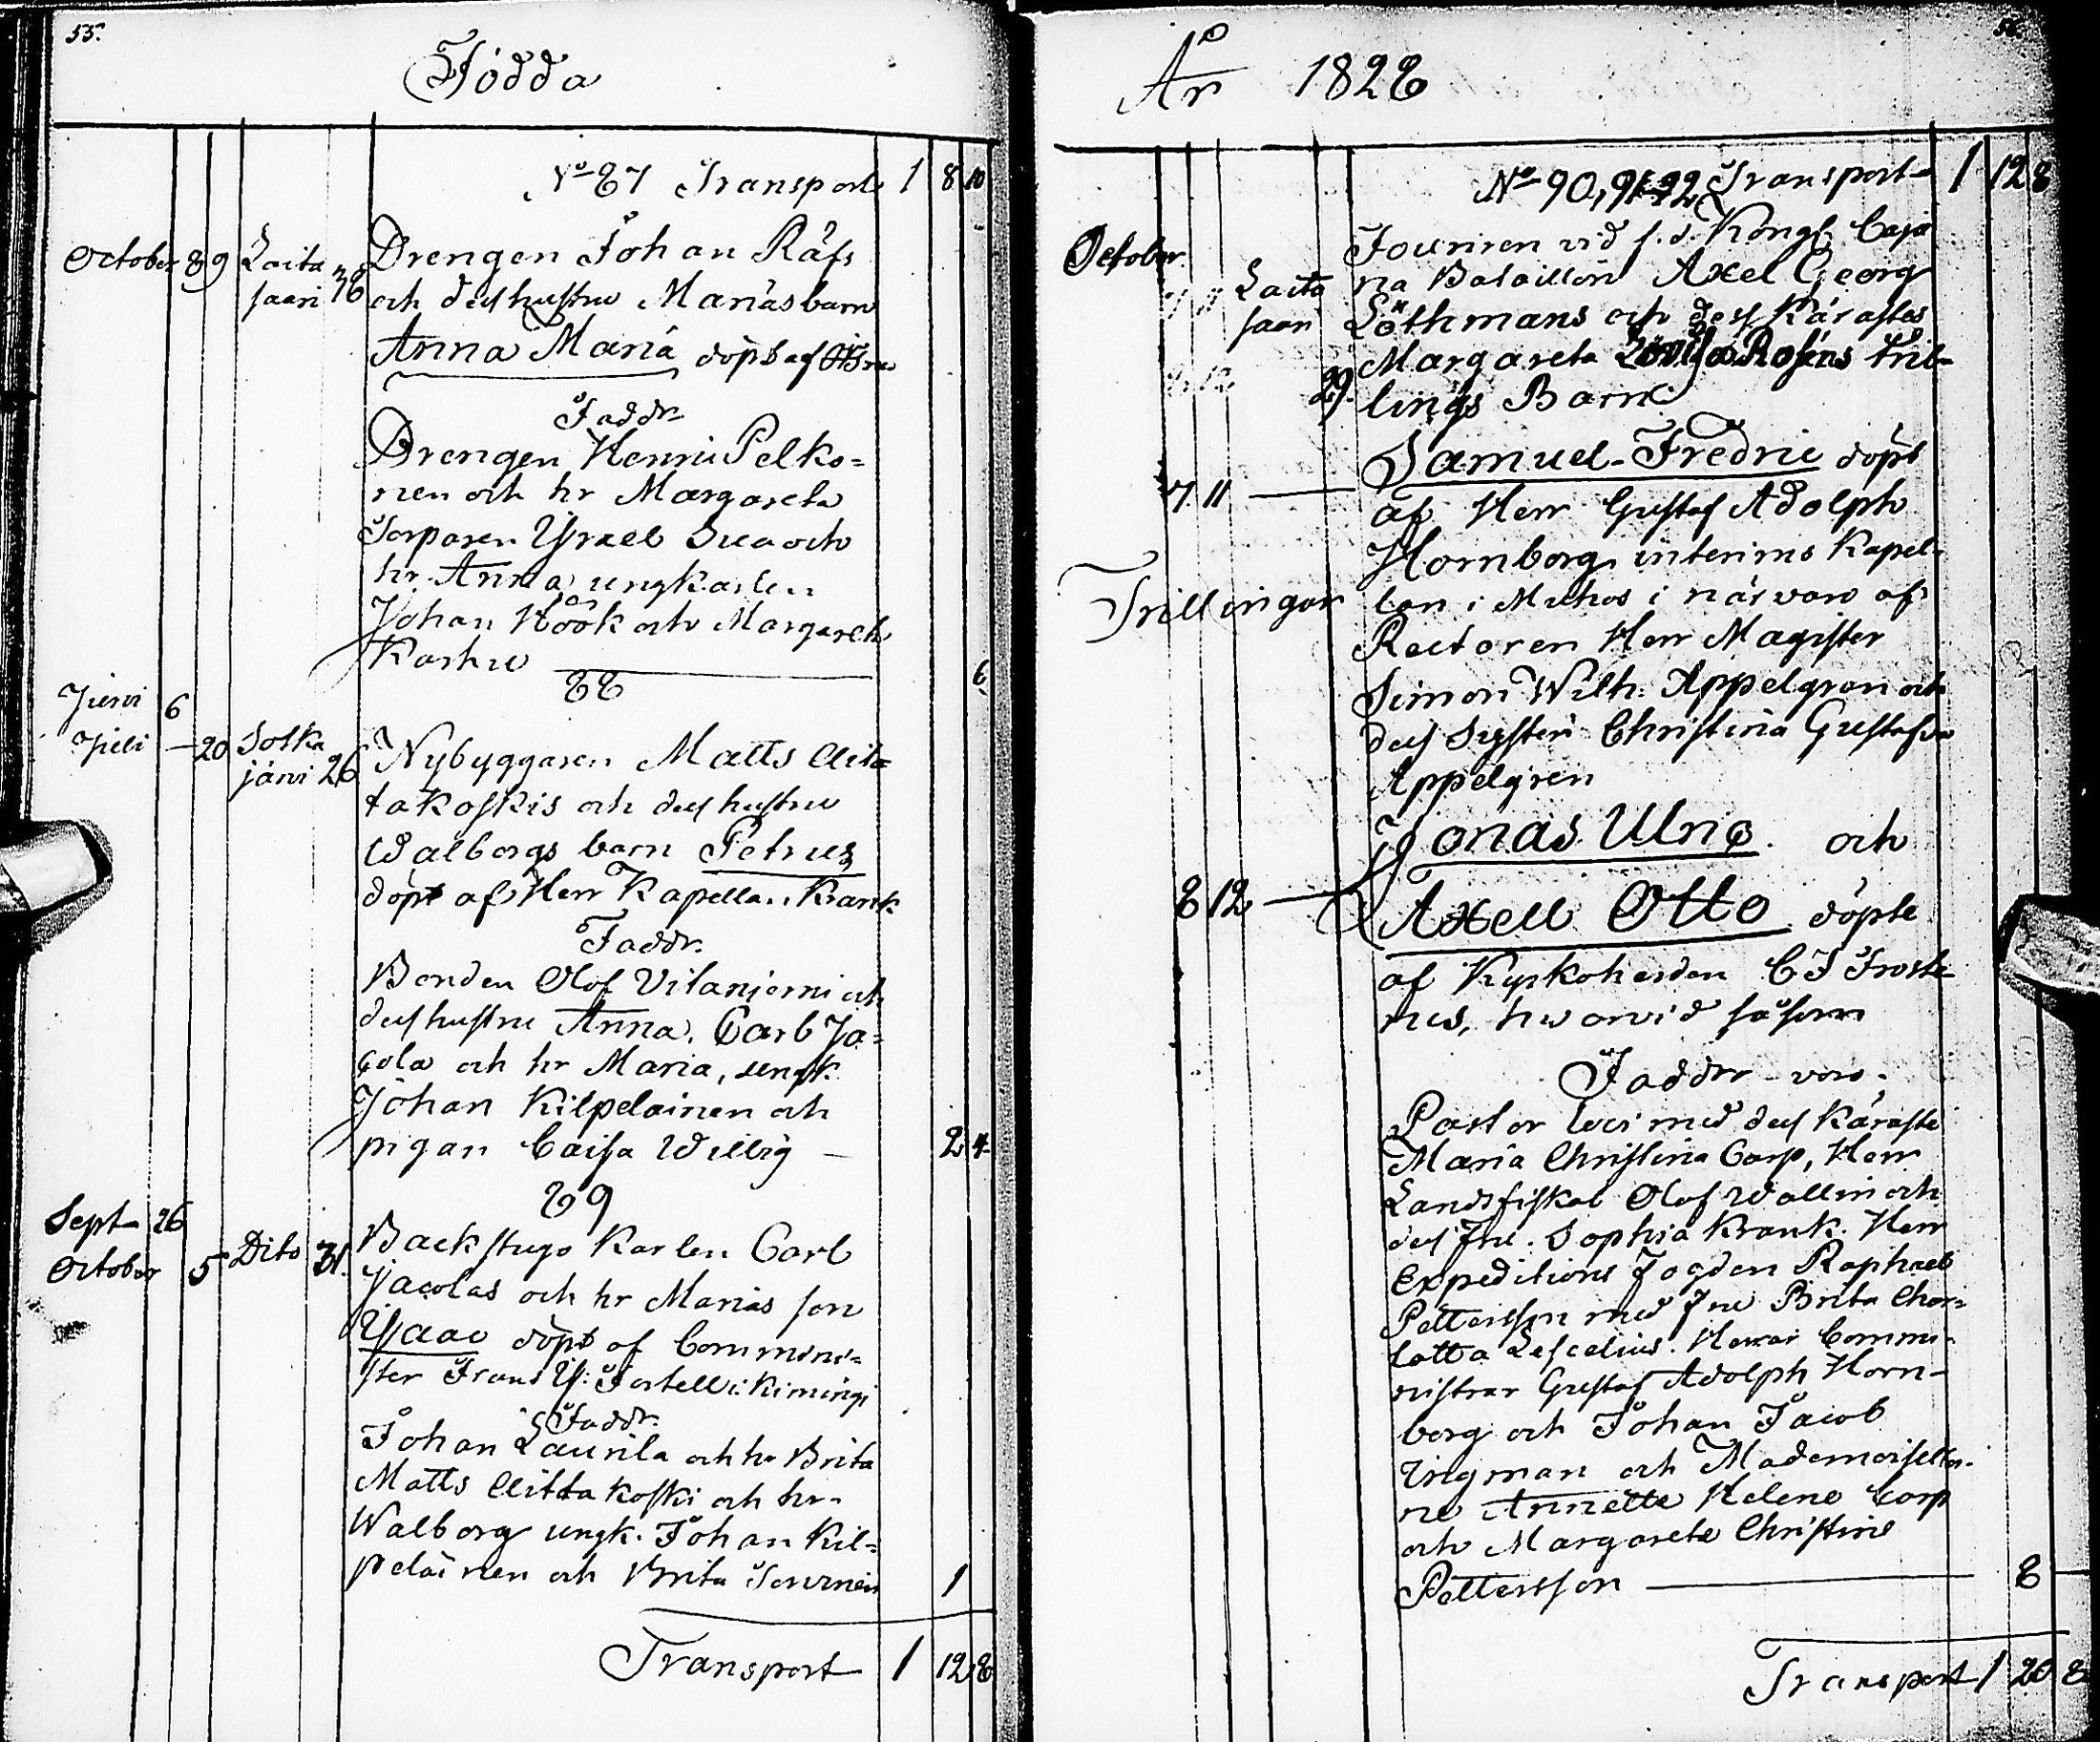 55.
Födda
No 87 Transport 1 8 10
October 8 9 Laita Drengen Johan Räfs
saari 36 och dess hustru Marias barn
Anna Maria döpt af
Faddr
Drengen Henric Pelko=
nen och hr Margareta
Torparen Ysrael Sua och
hr Anna, ungkarlen
Johan Höök och Margareta
Karhu 6
88
Juni 6
Juli — 20 Sotka Nybyggaren Matts Aita
järvi 26
takoskis och dess hustru
Walborgs barn Petrus
döpt af Herr Kapellan Krank
Faddr.
Bonden Olof Vitaniemi och
dess hustru Anna, Carl Ja=
cola och hr Maria, ungk.
Johan Kilpelainen och
pigan Caisa Willig — 2 4
89
Sept 26
October 5 Dito 31. Backstugo Karlen Carl
Jacolas och hr Marias son
Ysaac döpt af Commini=
ster Frans Ys: Fortell i Kimingi
Faddr.
Johan Laurila och hr Brita
Matts Aitta koski och hr
Walborg ungk. Johan Kil=
peläinen och Brita 1
Transport 1 12 8
56.
År 1828
No 90, 91 92 Transport 1 12 8
October Fouriren vid f.d. Kongl. Caja
7 11 Laita na Bataillon Axel Georg
saari Löthmans och dess Kärastes
Margareta Lovisa Roséns tril-
8 12 29. lings Barn
Samuel Fredric döpt
7 11 — af Herr Gustaf Adolph
Hornborg interims Kapel-
Trillingar lan i Muhos i närvaro af
Rectoren Herr Magister
Simon Wilh. Appelgren och
dess Syster Christina Gustafva
Appelgren
Jonas Uno. och
8 12 — Axell Otto döpte
af Kyrkoherden C J Froste
rus, hvarvid såsom
Faddr voro.
Pastor loci med dess Käraste
Maria Christina Corp, Herr
Landsfiskal Olof Wallin och
dess Fru. Sophia Krank. Herr
Expeditions Fogden Raphael
Pettersson med Fru Brita Char=
lotta Lescelius. Herrar Commi-
nistrar Gustaf Adolph Horn-
borg och Johan Jacob
Ingman och Mademoiseller-
ne Annette Helene Corp
och Margareta Christine
Pettersson — 8
Transport 1 20 8